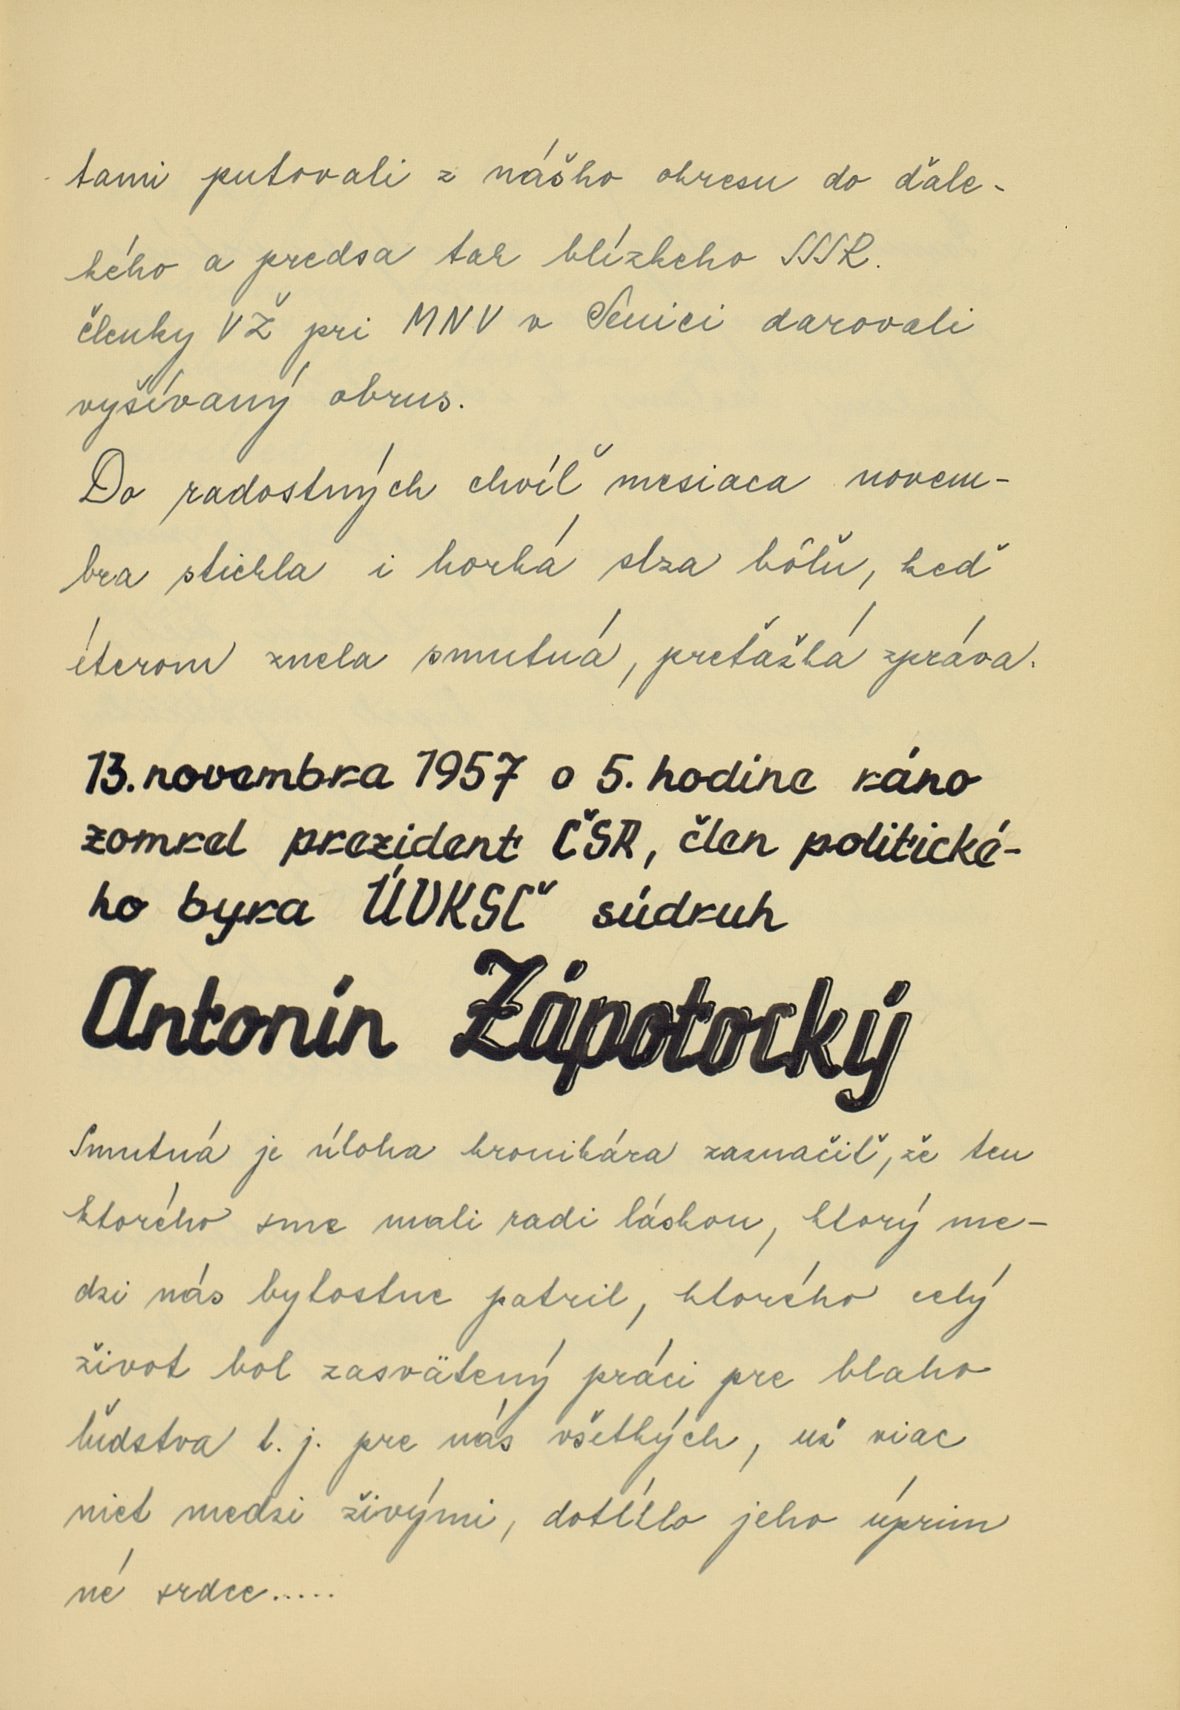 tami putovali z nášho okresu do ďale-
kého a predsa tak blízkeho SSSR.
členky VŽ pri MNV v Senici darovali
vyšívaný obrus.
Do radostných chvíľ mesiaca novem-
bra stiekla i horká slza bôľu, keď
éterom znela smutná, preťažká zpráva.
13. novembra 1957 o 5. hodine ráno
zomrel prezident ČSR, člen politické-
ho byra ÚVKSČ súdruh
Antonín Zápotocký
Smutná je úloha kronikára zaznačiť, že ten
ktorého sme mali radi láskou, ktorý me-
dzi nás bytostne patril, ktorého celý
život bol zasvätený práci pre blaho
ľudstva t. j. pre nás všetkých, už viac
niet medzi živými, dotĺklo jeho úprim
né srdce.....